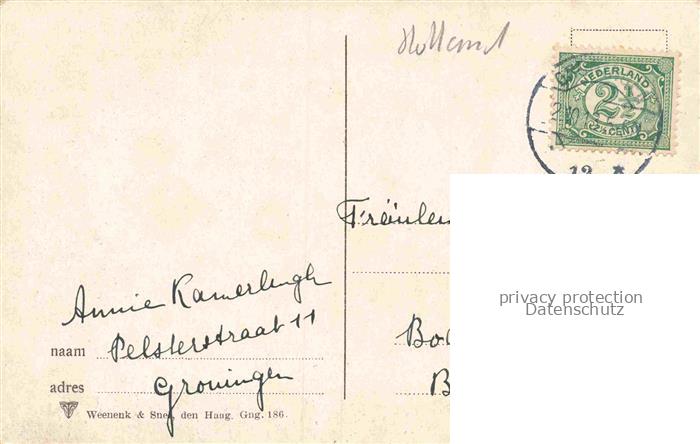 Holland
NEDERLAND
2½
(2½ CENT)
12
Fräulein
privacy protection
Datenschutz
Annie Kamerlingh
Pelsterstraat 11
naam
Groningen
adres
Weenenk & Snel, den Haag. Gng. 186.